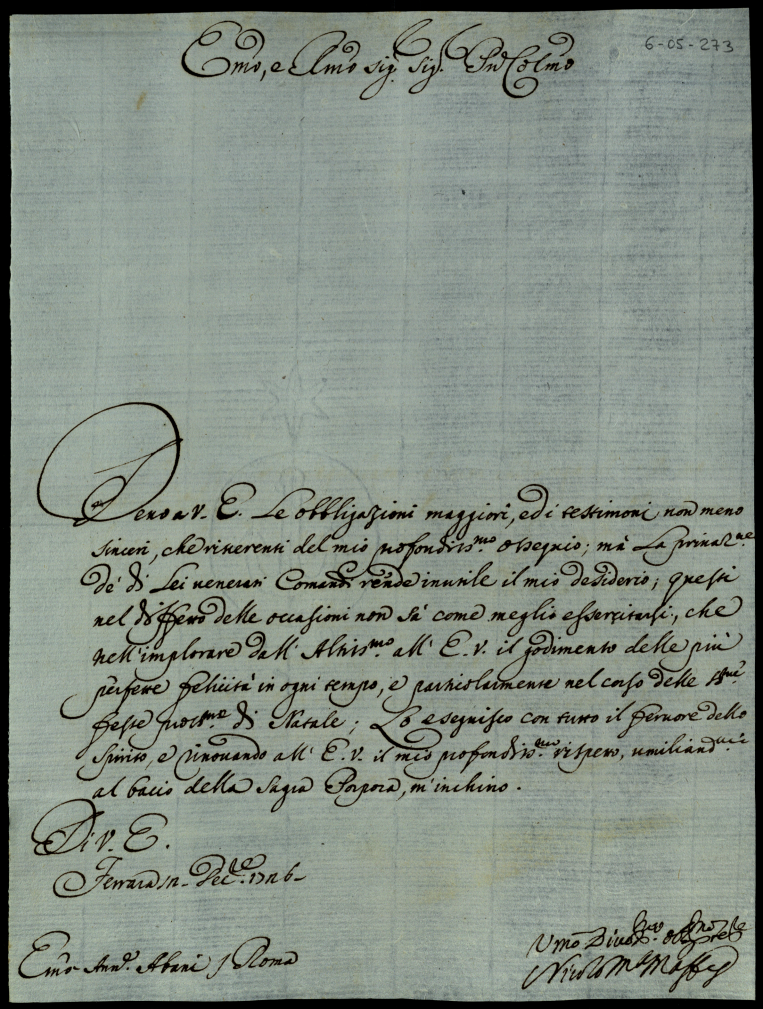 6-05-273
Emo, e Rmo sig.r sig.r Pne Colmo
Devo a V. E. le obbligazioni maggiori, ed i testimoni non meno
sinceri, che riverenti del mio profondiss.mo ossequio; mà la privaz.ne
de' di Lei venerati Comandi rende inutile il mio desiderio; questi
nel diffetto delle occasioni non sà come meglio essercitarsi, che
nell'implorare dall'Altiss.mo all'E. V. il godimento delle più
perfette felicità in ogni tempo, e particolarmente nel corso delle
feste pross.me di Natale; Lo eseguisco con tutto il fervore dello
spirito, e rinovando all'E. V. il mio profondiss.mo rispetto, umiliand.mi
al bacio della Sagra Porpora, m'inchino.
Di V. E.
Ferrara 12 Dec.bre 1726
Emo Ann.e Albani / Roma
Umo Divo.mo Obb.mo
Nicolò M.a Maffei